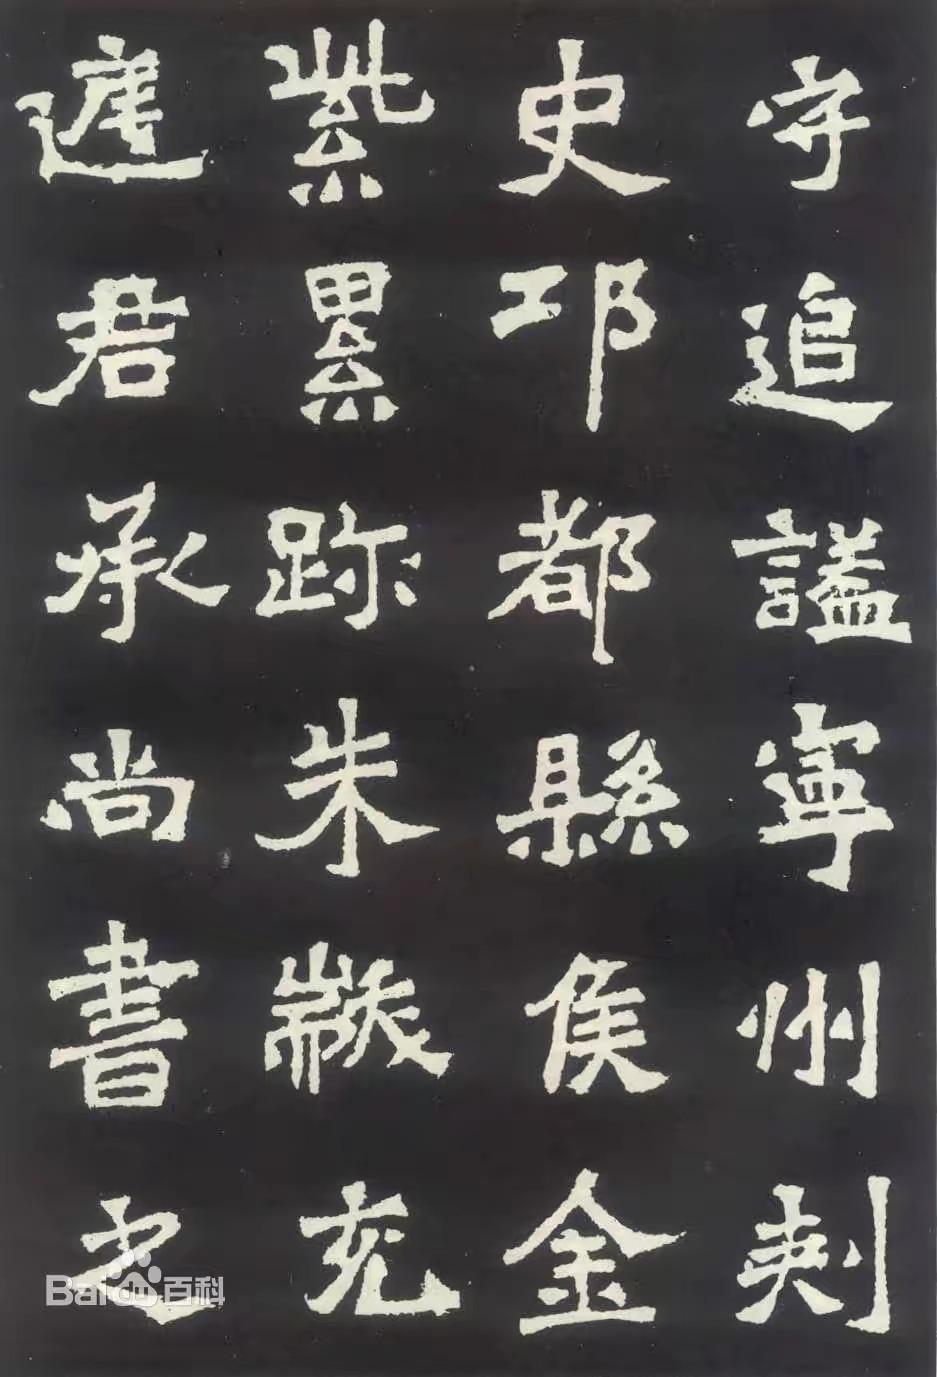 守追諡寧州刺
史邛都縣侯金
紫累跡朱黻充
庭君承尚書之
Bai du 百科